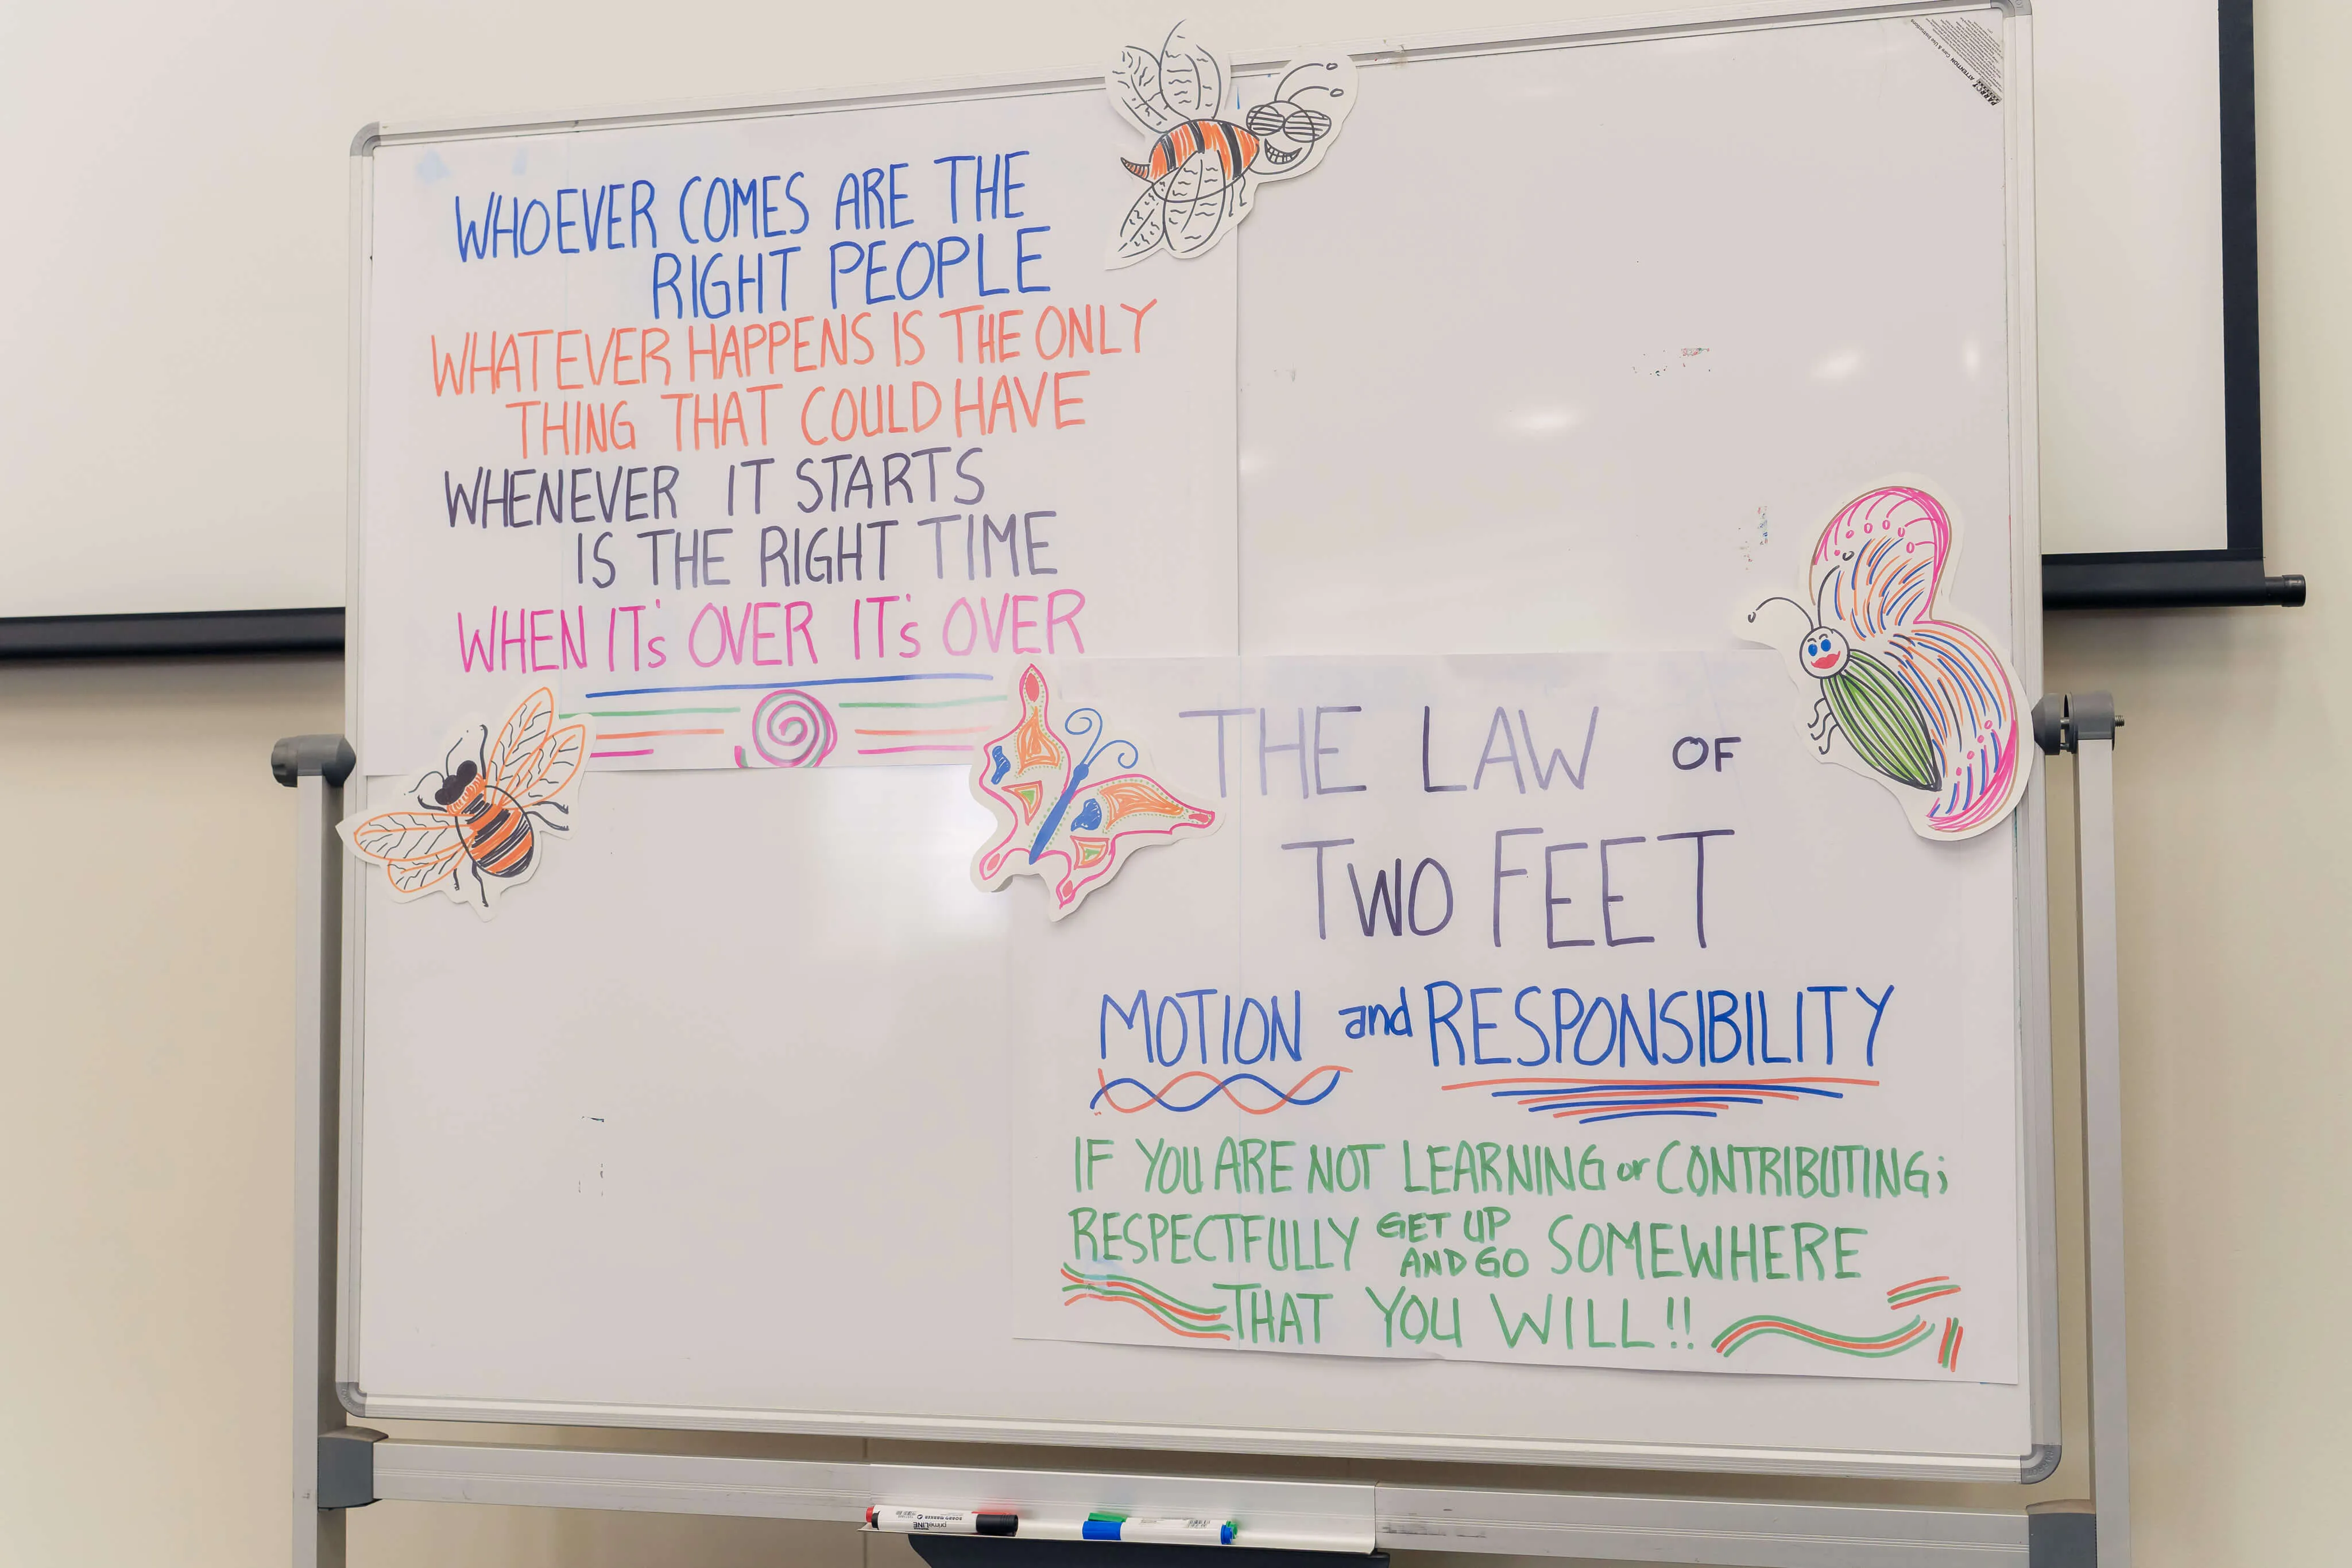 WHOEVER COMES ARE THE
RIGHT PEOPLE
WHATEVER HAPPENS IS THE ONLY
THING THAT COULD HAVE
WHENEVER IT STARTS
IS THE RIGHT TIME
WHEN IT's OVER IT's OVER
THE LAW OF
TWO FEET
MOTION and RESPONSIBILITY
IF YOU ARE NOT LEARNING or CONTRIBUTING;
RESPECTFULLY GET UP AND GO SOMEWHERE
THAT YOU WILL!!